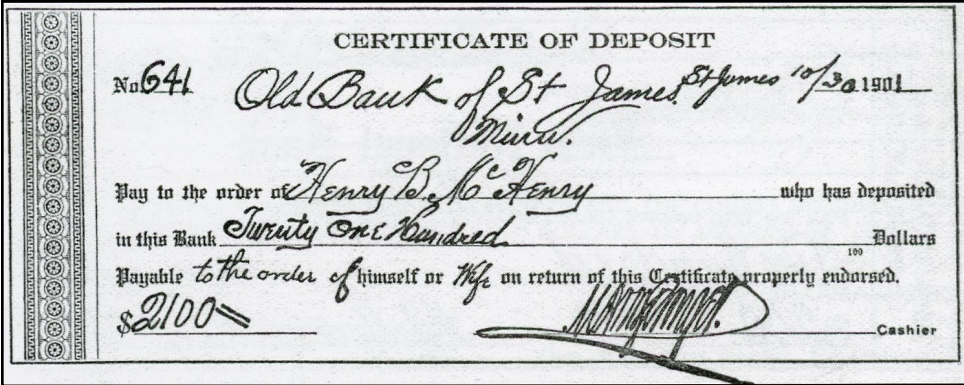 CERTIFICATE OF DEPOSIT
No. 641 Old Bank of St James. St James 10/30 1901
Minn.
Pay to the order of Henry B. McHenry who has deposited
in this Bank Twenty One Hundred Dollars
100
Payable to the order of himself or Wife on return of this Certificate properly endorsed.
$2100 Cashier